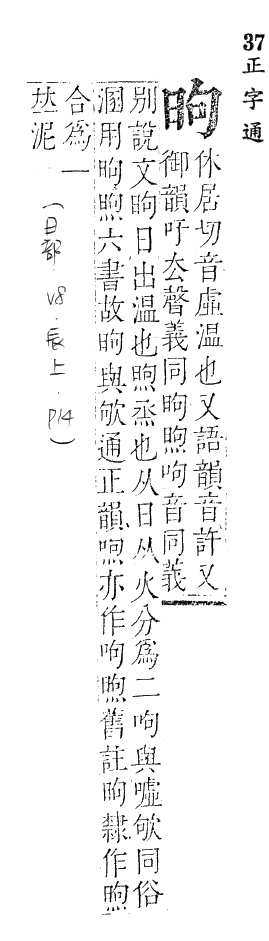 37正字通
昫
休居切音虛溫也又語韻音許又
御韻吁去聲義同昫煦呴音同義
別說文昫日出溫也煦烝也从日从火分為二呴與噓欨同俗
溷用昫煦六書故昫與欨通正韻煦亦作呴煦舊註昫隸作煦
合為一
𠀤泥
(日部 v8.辰上.p14)